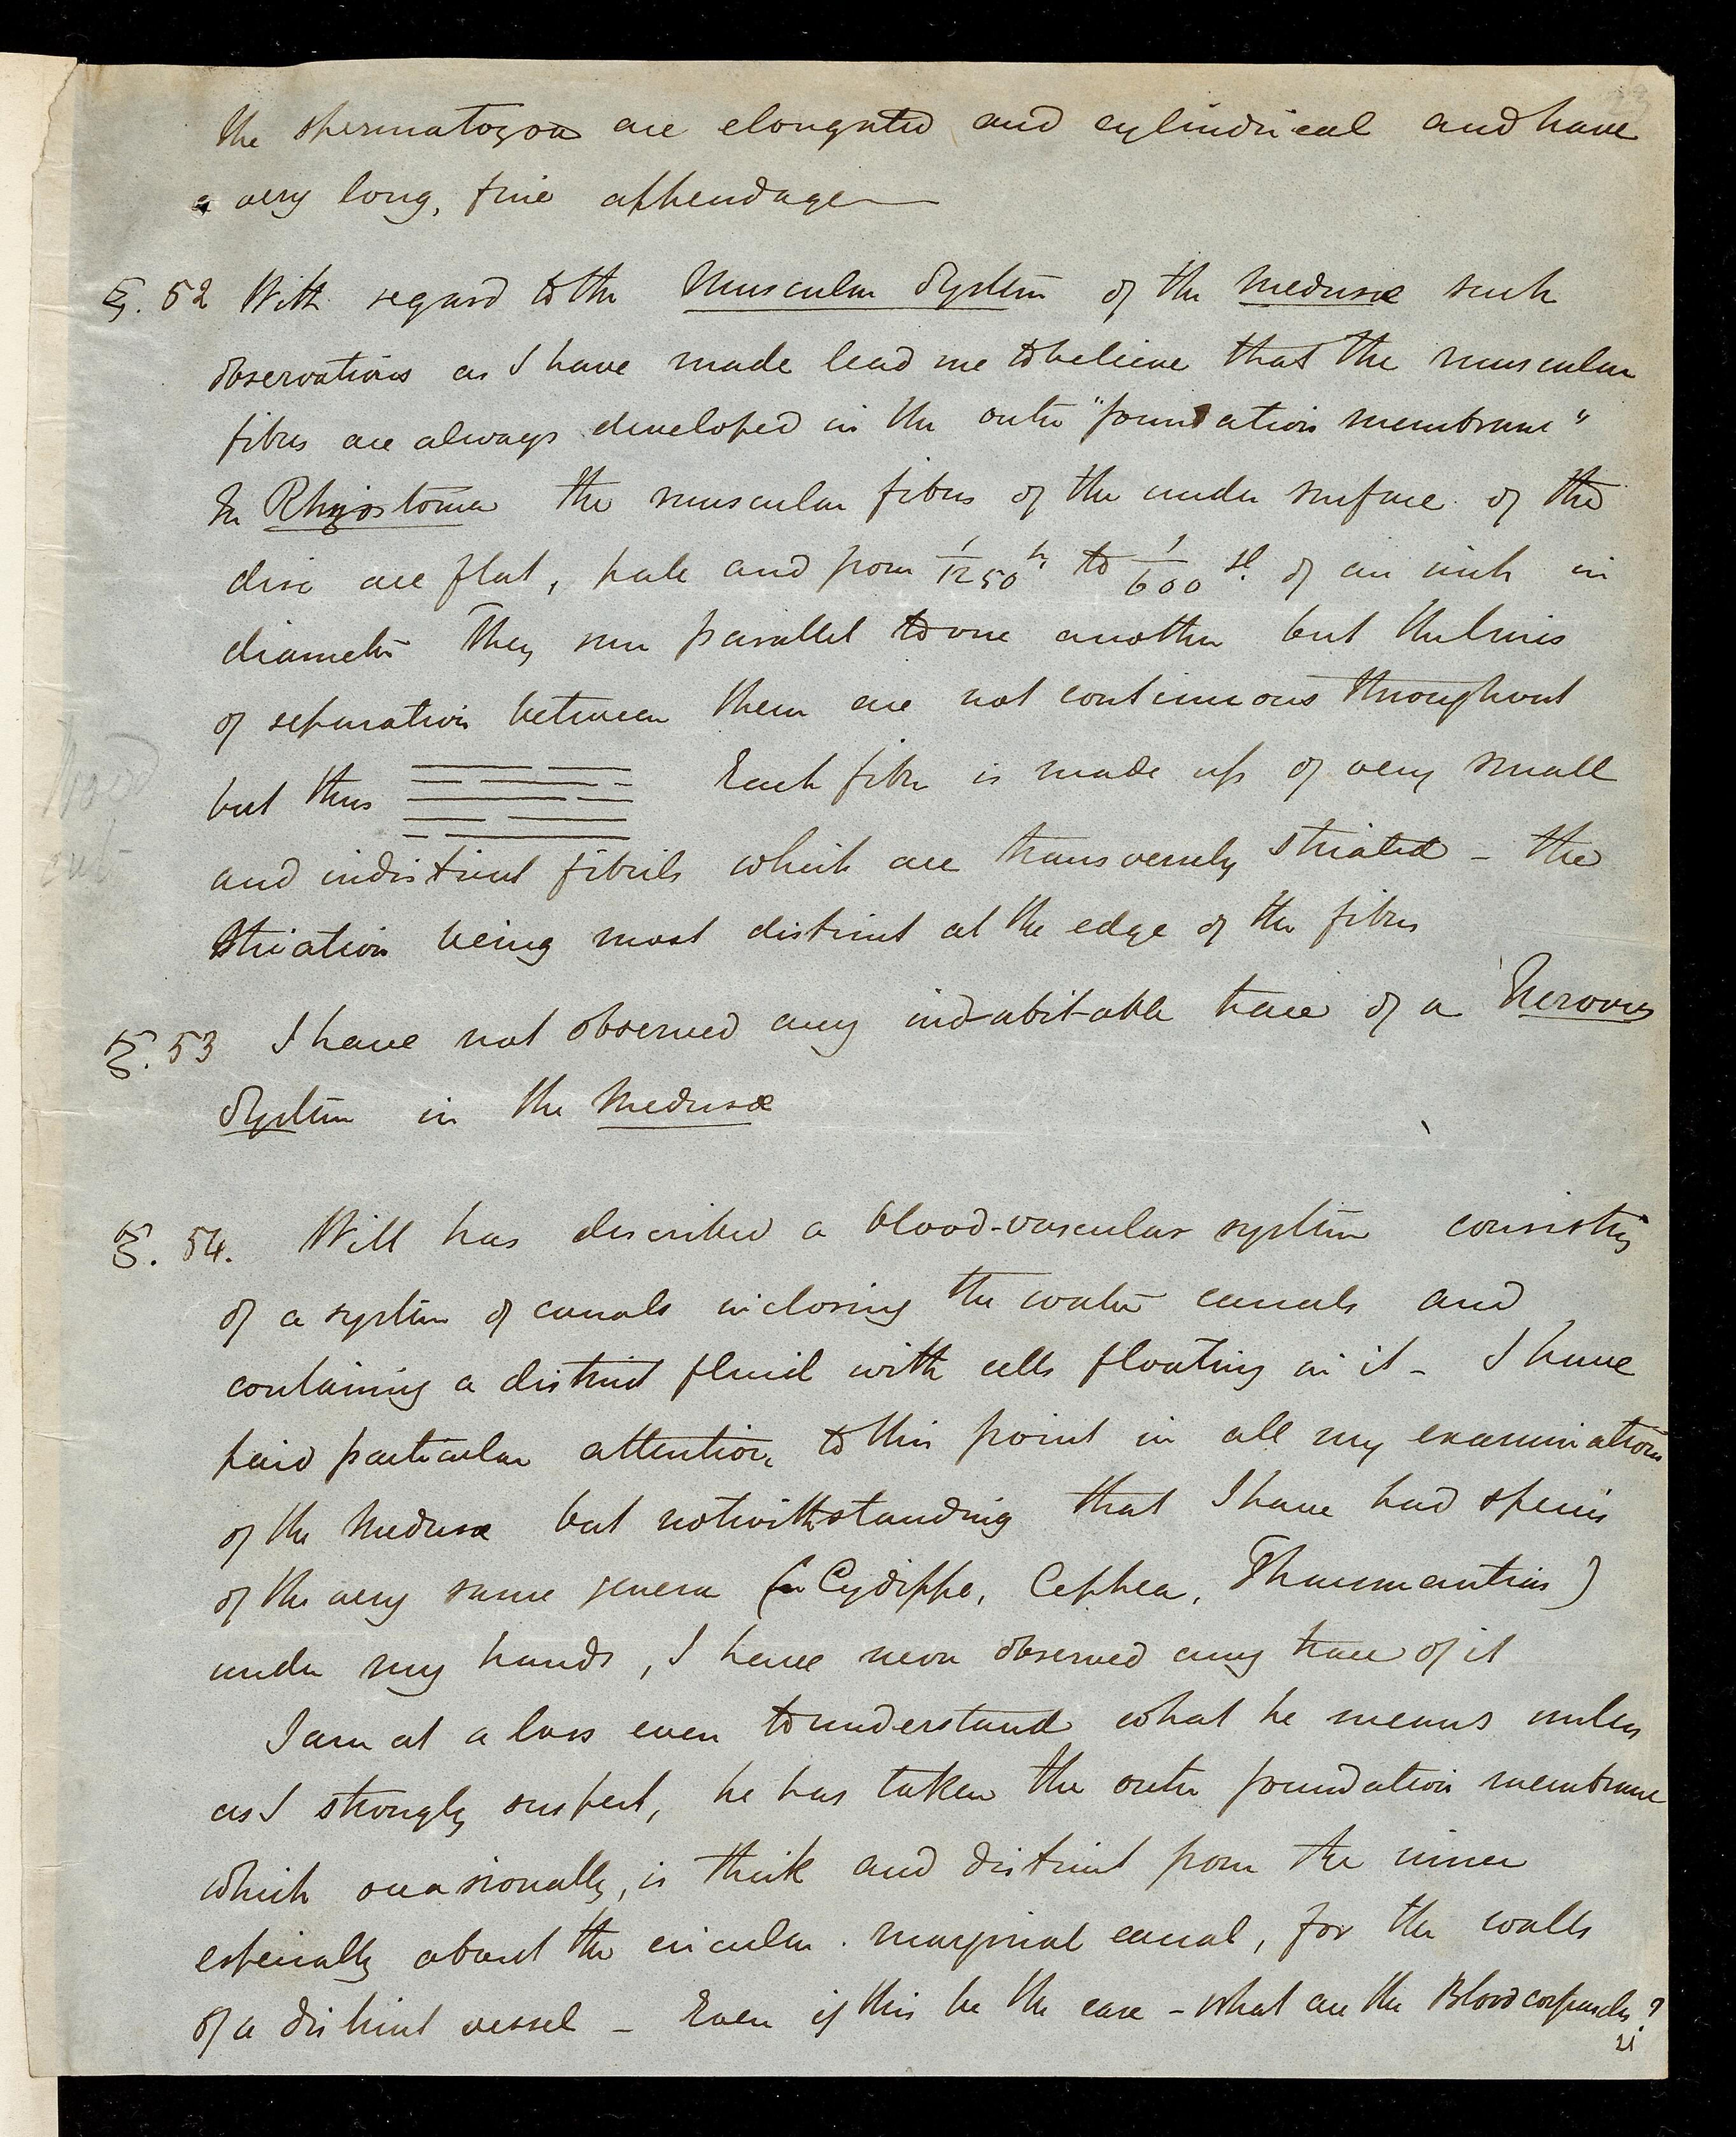 the spermatozoa are elongated and cylindrical and have
a very long, fine appendage
§. 52 With regard to the Muscular System of the Medusæ such
observations as I have made lead me to believe that the muscular
fibres are always developed in the outer "foundation membrane"
In Rhizostoma the muscular fibres of the under surface of the
disc are flat, pale and from 1/1250th to 1/600th of an inch in
diameter They run parallel to one another but the lines
of separation between them are not continuous throughout
but thus Each fibre is made up of very small
and indistinct fibrils which are transversely striated – the
striation being most distinct at the edge of the fibres
§. 53 I have not observed any indubitable trace of a Nervous
System in the Medusæ
§. 54. Will has described a blood-vascular system consisting
of a system of canals inclosing the water canals and
containing a distinct fluid with cells floating in it – I have
paid particular attention to this point in all my examinations
of the Medusæ but notwithstanding that I have had species
of the very same genera (Cydippe, Cephea, Thaumantias)
under my hands, I have never observed any trace of it
I am at a loss even to understand what he means unless
as I strongly suspect, he has taken the outer foundation membrane
which occasionally, is thick and distinct from the inner
especially about the circular marginal canal, for the walls
of a distinct vessel – Even if this be the case – what are the Blood corpuscles?
21